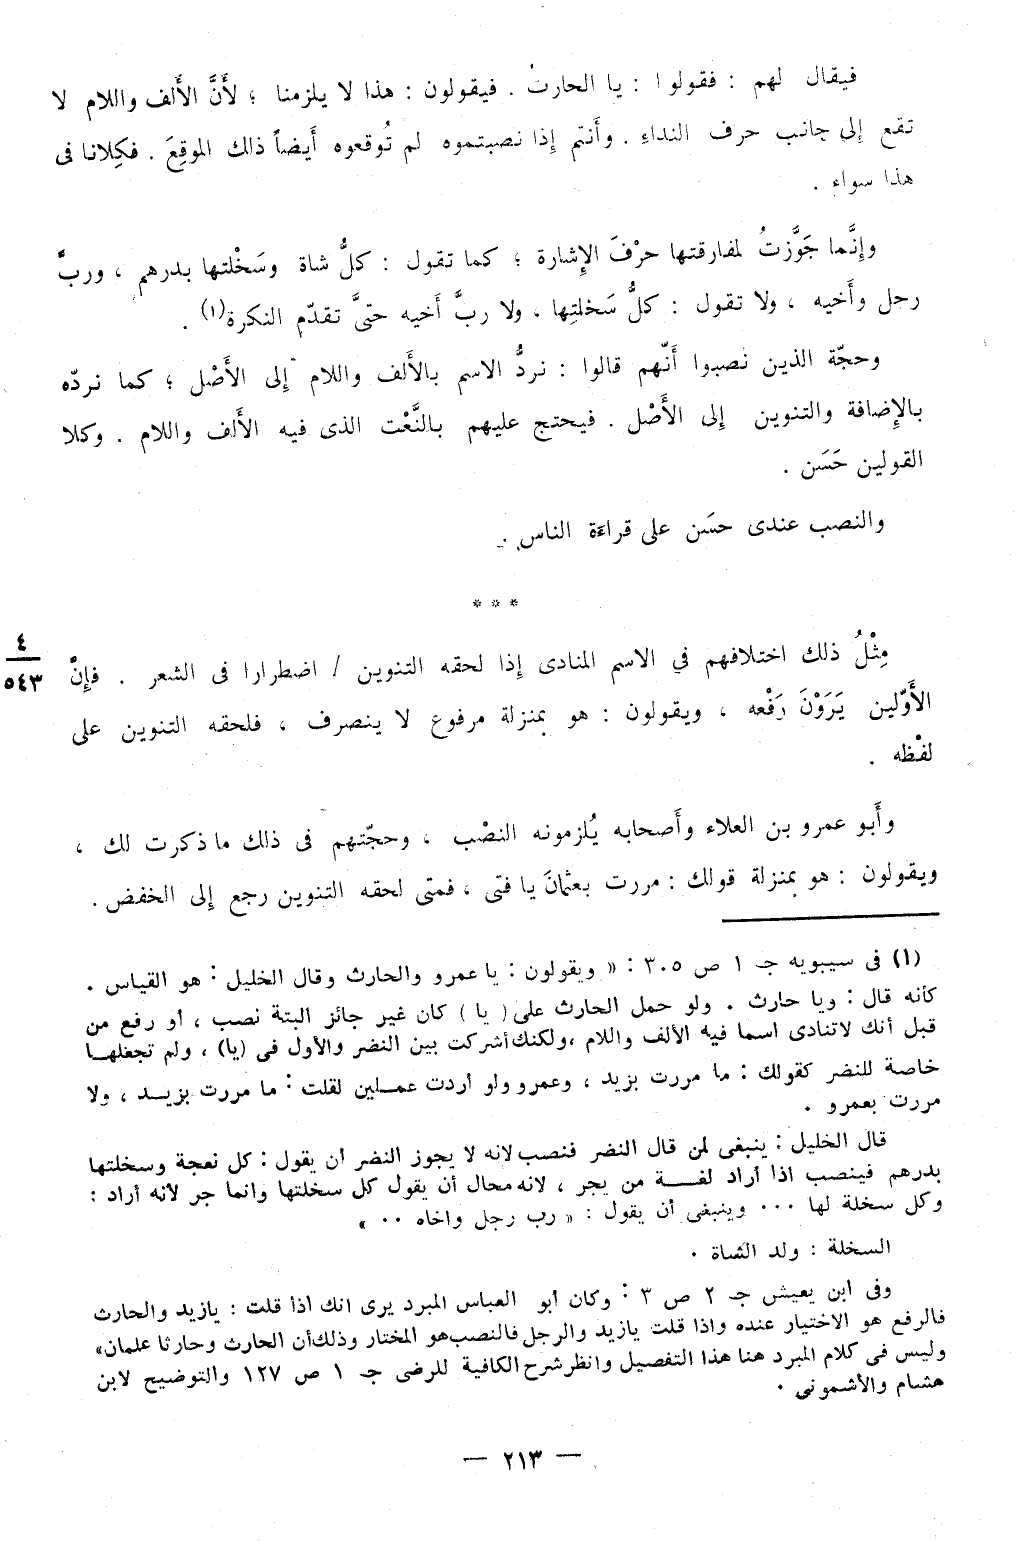 فيقال لهم : فقولوا : يا الحارث . فيقولون : هذا لا يلزمنا ؛ لأَنَّ الأَلف واللام لا
تقع إلى جانب حرف النداءِ . وأَنتم إذا نصبتموه لم تُوقعوه أَيضاً ذاك الموقِعَ . فكِلانا فى
هذا سواء .
وإنَّما جَوَّزتُ لمفارقتها حرْفَ الإِشارة ؛ كما تقول : كلُّ شاة وسَخْلتها بدرهم ، وربَّ
رجل وأَخيه ، ولا تقول : كلُّ سَخلتِها ، ولا ربَّ أخيه حتىَّ تقدّم النكرة(١) .
وحجّة الذين نصبوا أَنّهم قالوا : نردُّ الاسم بالأَلف واللام إلى الأَصْل ؛ كما نردّه
بالإِضافة والتنوين إلى الأَصْل . فيحتج عليهم بالنَّعْت الذى فيه الأَلف واللام . وكلا
القولين حَسَن .
والنصب عندى حسَن على قراءَة الناس .
* * *
مِثْلُ ذلك اختلافهم في الاسم المنادى إذا لحقه التنوين / اضطرارا فى الشعر . فإِنَّ
٤
٥٤٣
الأَوّلين يَرَوْنَ رَفْعه ، ويقولون : هو بمنزلة مرفوع لا ينصرف ، فلحقه التنوين على
لفْظه .
وأَبو عمرو بن العلاء وأَصحابه يُلزمونه النصْب ، وحجّتهم فى ذلك ما ذكرت لك ،
ويقولون : هو بمنزلة قولك : مررت بعثمانَ يا فتى ، فمتى لحقه التنوين رجع إلى الخفض .
(١) فى سيبويه جـ ١ ص ٣٠٥ : « ويقولون : يا عمرو والحارث وقال الخليل : هو القياس .
كأنه قال : ويا حارث . ولو حمل الحارث على ( يا ) كان غير جائز البتة نصب ، أو رفع من
قبل أنك لاتنادى اسما فيه الألف واللام ،ولكنك أشركت بين النضر والأول فى (يا) ، ولم تجعلهـا
خاصة للنضر كقولك : ما مررت بزيد ، وعمرو ولو أردت عمـلين لقلت : ما مررت بزيـد ، ولا
مررت بعمرو .
قال الخليل : ينبغى لمن قال النضر فنصب لانه لا يجوز النضر أن يقول : كل نعجة وسخلتها
بدرهم فينصب اذا أراد لغـة من يجر ، لانه محال أن يقول كل سخلتها وانما جر لأنه أراد :
وكل سخلة لها ... وينبغى أن يقول : « رب رجل وأخاه .. »
السخلة : ولد الشاة .
وفى ابن يعيش جـ ٢ ص ٣ : وكان أبو العباس المبرد يرى انك اذا قلت : يازيد والحارث
فالرفع هو الاختيار عنده واذا قلت يازيد والرجل فالنصب هو المختار وذلك أن الحارث وحارثا علمان»
وليس فى كلام المبرد هنا هذا التفصيل وانظر شرح الكافية للرضى جـ ١ ص ١٢٧ والتوضيح لابن
هشام والأشمونى .
— ٢١٣ —